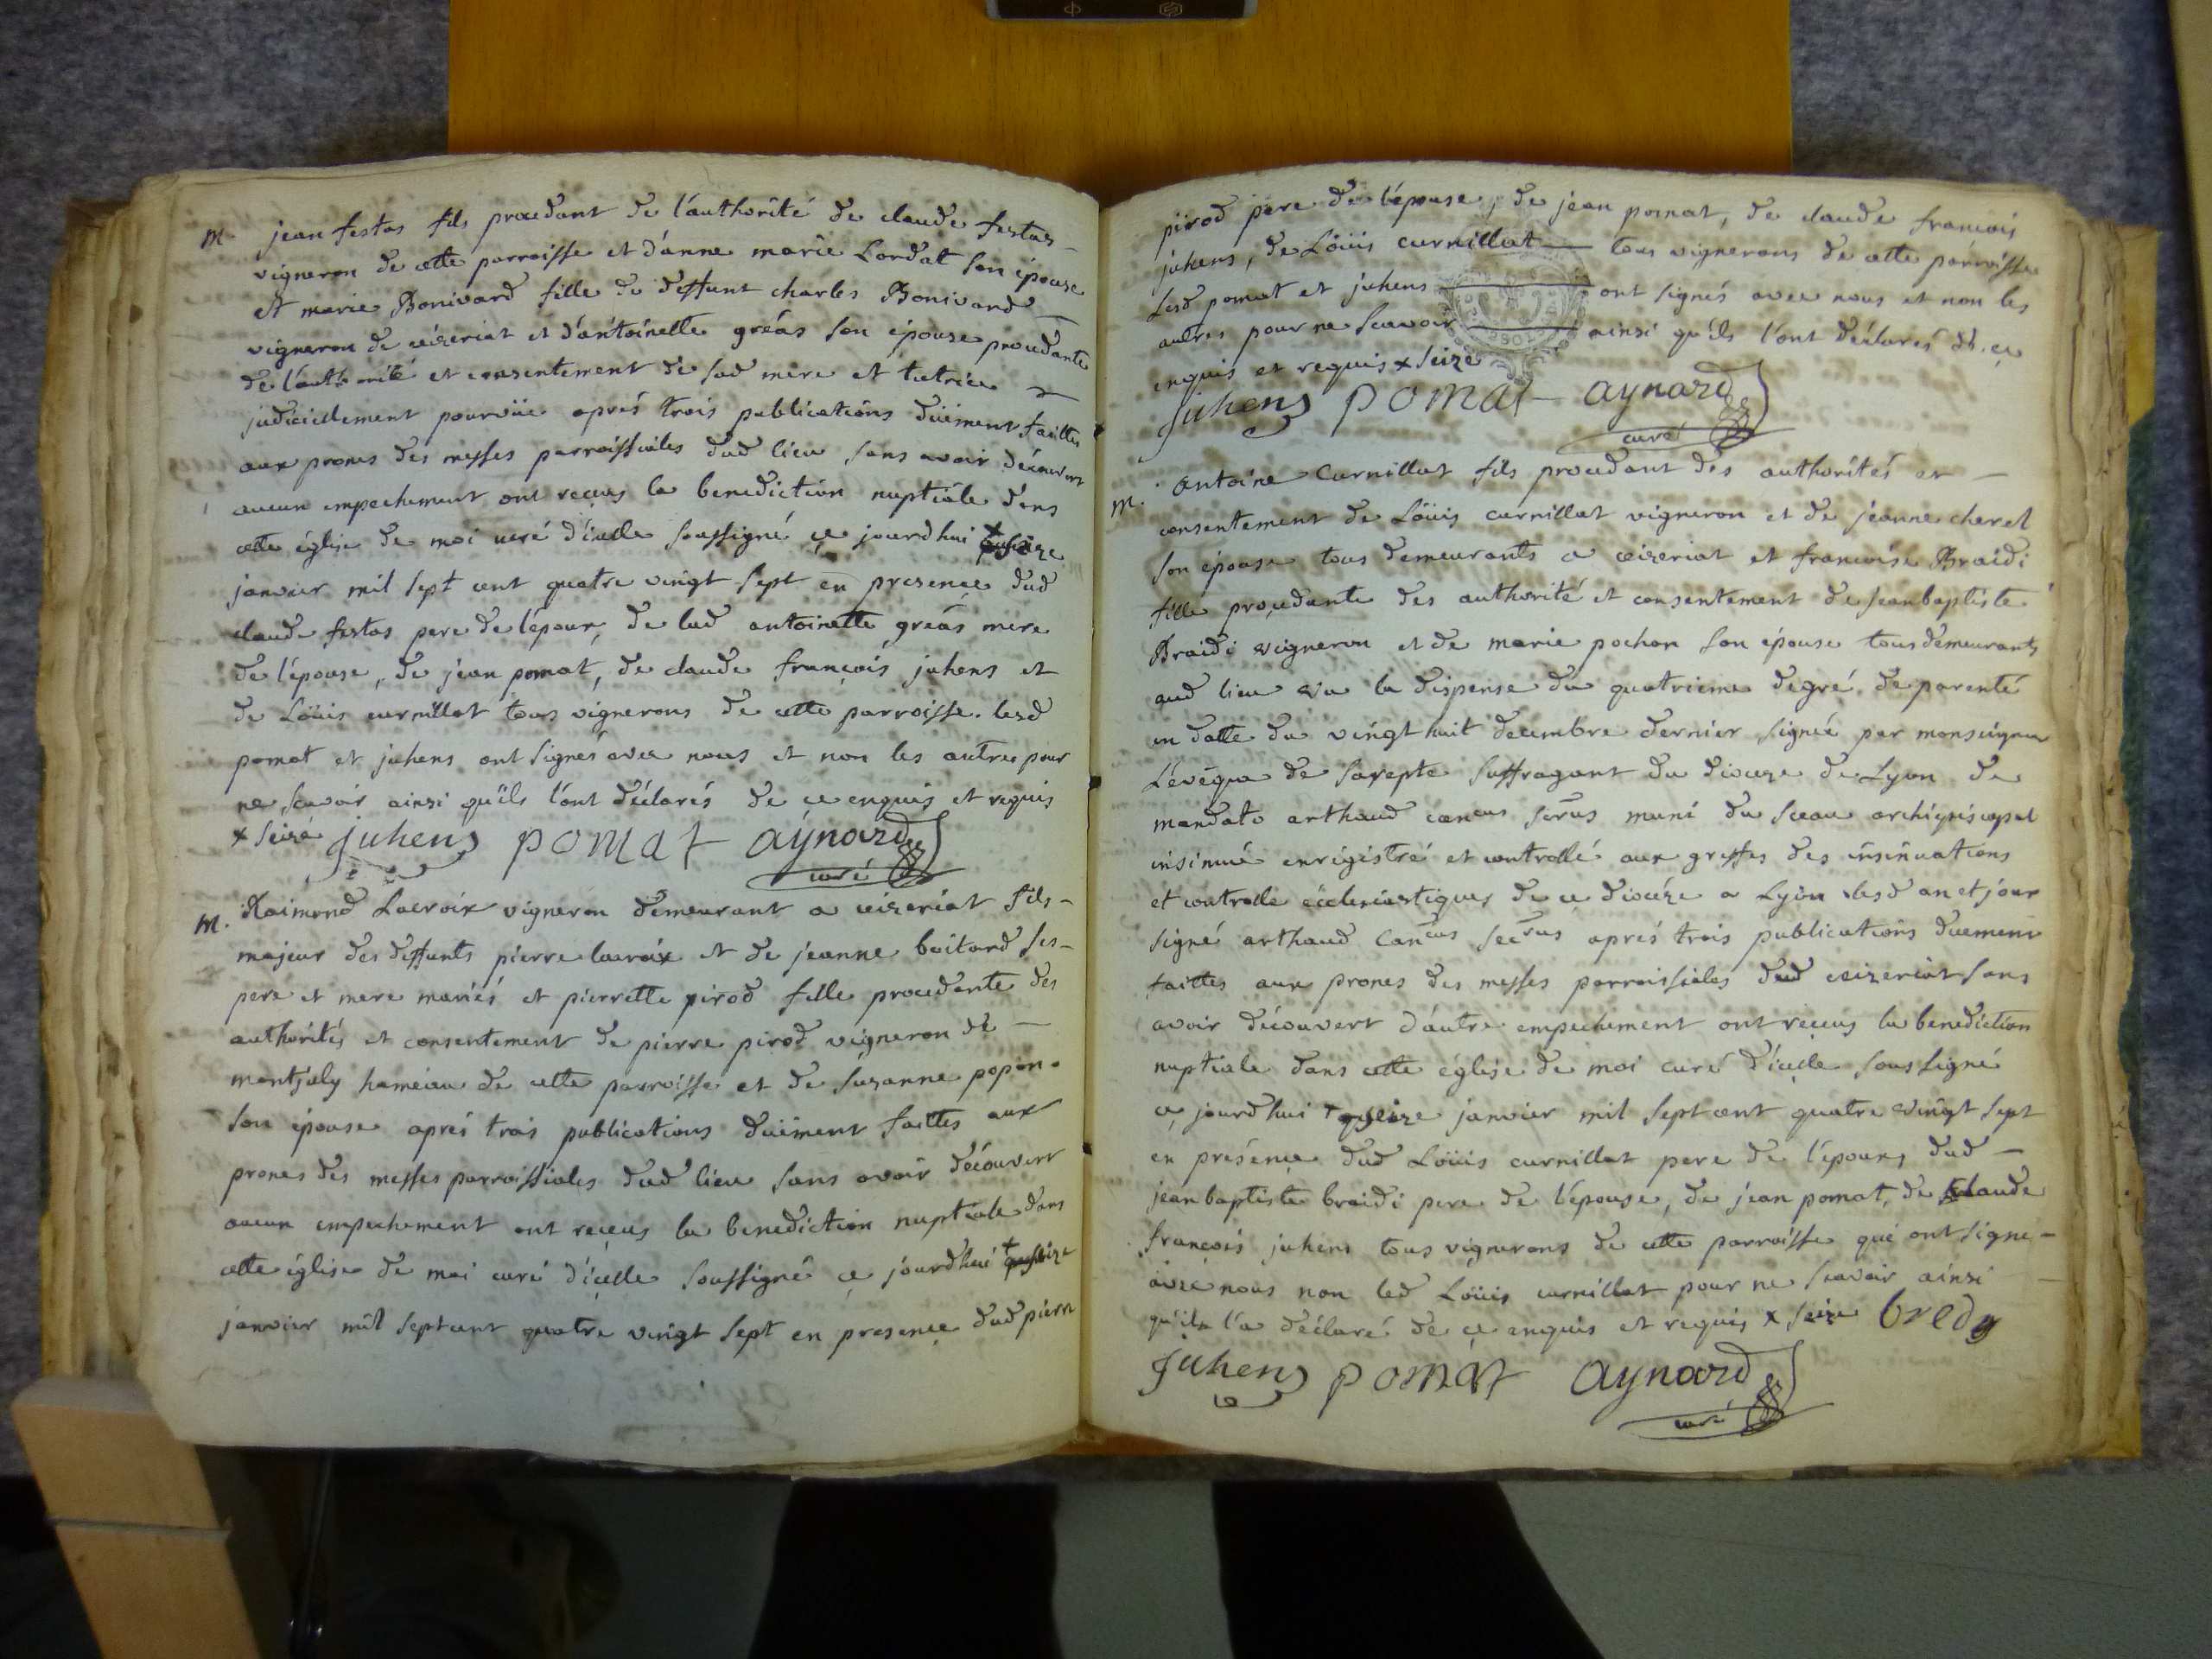 m. jean festas fils procedant de l'authorité de claude festas
vigneron de cette parroisse et d'anne marie Lordat son épouse
et marie Bonivard fille de deffunt charles Bonivard
vigneron de ceizeriat et d'antoinette gréas son épouse procedante
de l'authorité et consentement de sad mere et tutrice
judiciellement pourvüe aprés trois publications düement faittes
aux prones des messes parroissiales dud lieu sans avoir découvert
aucun empechement ont reçeus la benediction nuptiale dens
cette église de moi curé d'icelle soussigné ce jourdhui x
janvier mil sept cent quatre vingt sept en presence dud
claude festas pere de lépoux, de lad antoinette gréas mere
de l'épouse, de jean pomat, de claude françois juhens et
de Loüis curnillat tous vignerons de cette parroisse. lesd
pomat et juhens ont signés avec nous et non les autres pour
ne scavoir ainsi qu'ils l'ont déclarés de ce enquis et requis
x seize juhens pomat aynard
curé
m. Raimond Lacroix vigneron demeurant a ceizeriat fils
majeur des deffunts pierre lacroix et de jeanne boitard ses
pere et mere mariés et pierrette pirod fille procedante des
authorités et consentement de pierre pirod vigneron de
montjuly hameau de cette parroisse et de suzanne popon
son épouse aprés trois publications düement faittes aux
prones des messes parroissiales dud lieu sans avoir découvert
aucun empechement ont reçeus la benediction nuptiale dans
cette église de moi curé d'icelle soussigné ce jourdhui x
janvier mil sept cent quatre vingt sept en presence dud pierre
pirod pere de l'épouse, de jean pomat, de claude francois
juhens, de Loüis curnillat tous vignerons de cette parroisse
Lesd pomat et juhens ont signés avec nous et non les
autres pour ne scavoir ainsi qu'ils l'ont déclarés de ce
enquis et requis x seize
juhens pomat aynard
curé
m. Antoine Curnillat fils procedant des authorités et
consentement de Loüis curnillat vigneron et de jeanne charel
son épouse tous demeurants a ceizeriat et francoise Braidi
fille procedante des authorité et consentement de jeanbaptiste
Braidi vigneron et de marie pochon son épouse tous demeurants
aud lieu vu la dispense du quatrieme degré de parenté
en datte du vingt huit decembre dernier signée par monseigneur
L'évêque de sarepte suffragant du diocèze de Lyon de
mandato arthaud cancus scrus muni du sceau archiepiscopal
insinué enrigistré et controllé aux greffes des insinuations
et controlle ecclesiastiques de ce diocéze a Lyon lesd an et jour
signé arthaud Cancus secrus aprés trois publications duement
faittes aux prones des messes parroissiales dud ceizeriat sans
avoir découvert d'autre empechement ont reçeus la benediction
nuptiale dans cette église de moi curé d'icelle soussigné
ce jourdhui x janvier mil sept cent quatre vingt sept
en présence dud Loüis curnillat pere de l'époux, dud
jeanbaptiste braidi pere de l'épouse, de jean pomat, de claude
francois juhens tous vignerons de cette parroisse qui ont signé
avec nous non led Loüis curnillat pour ne scavoir ainsi
qu'il l'a déclaré de ce enquis et requis x seize bredy
juhens pomat aynard
curé